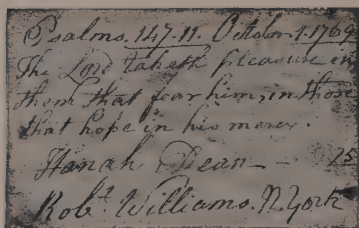 Psalms. 147.11. October 1. 1769
The Lord taketh pleasure in
them that fear him, in those
that hope in his mercy.
Hanah Dean — 75
Robt. Williams. N. York